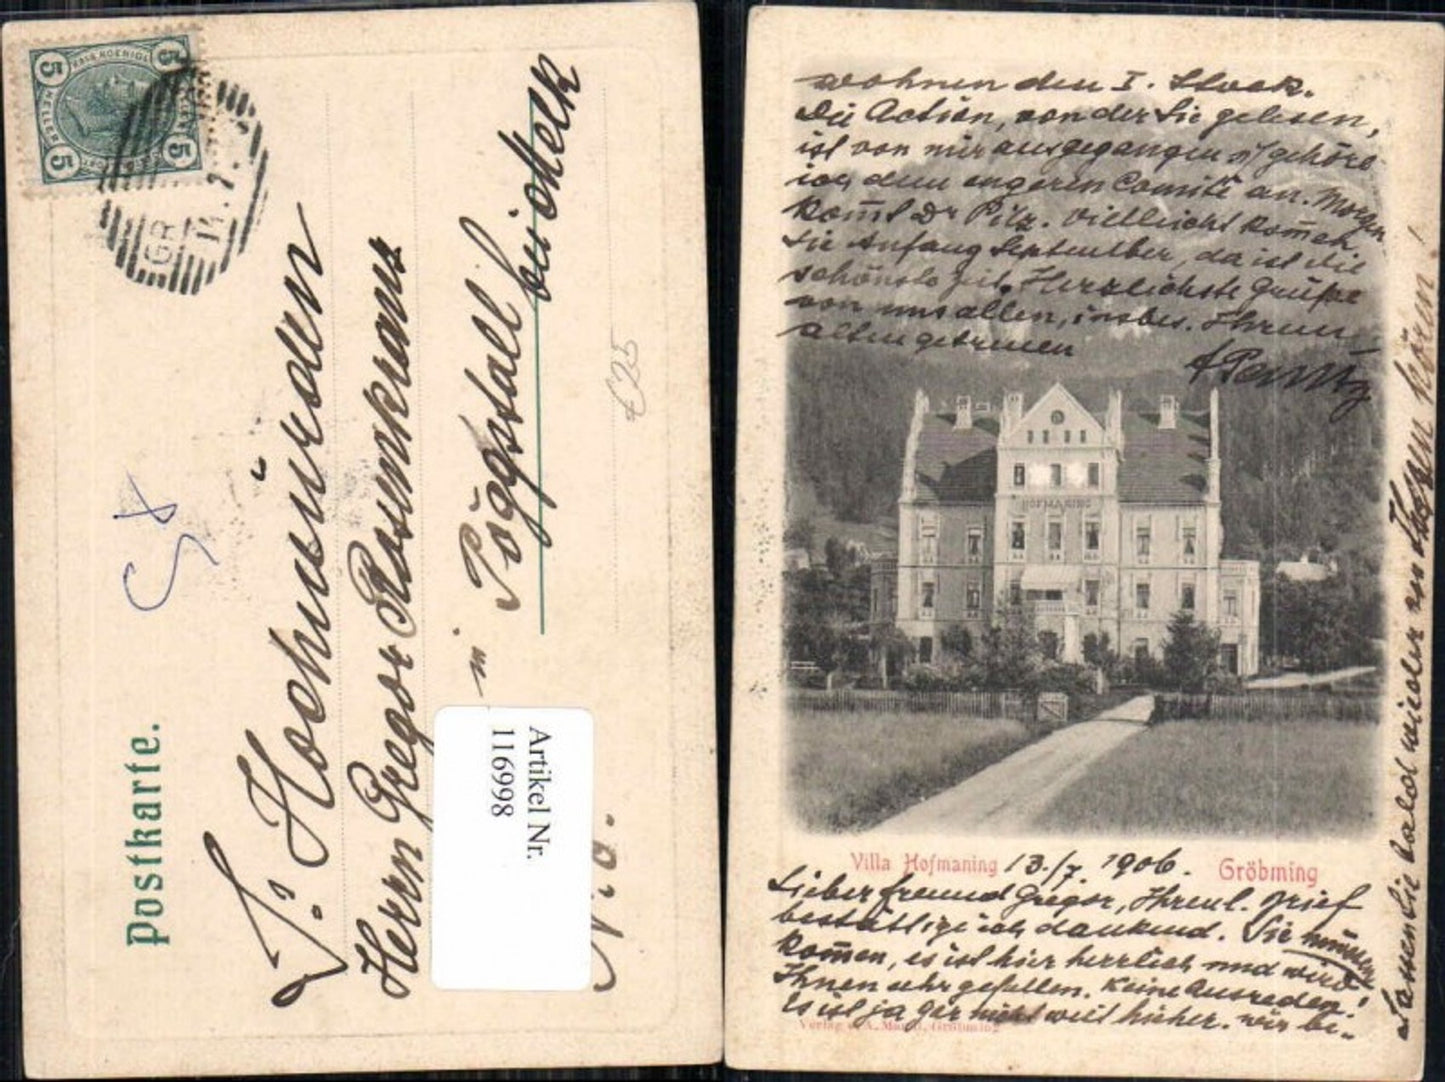 Postkarte.
5
5
5
5
GR
14.7.
S. Hochwürden
Herrn Gregor Rosenkranz
in
Pöggstall bei Melk
N.Ö.
€25
Artikel Nr.
116998
wohnen den I. Stock.
Die Action, von der Sie gelesen,
ist von mir ausgegangen u/ gehöre
ich dem engeren Comité an. Morgen
kom̅t Dr Pilz. Vielleicht kom̅en
Sie Anfang September, da ist die
schönste Zeit. Herzlichste Grüße
von uns allen, insbes. Ihrem
alten getreuen
HOFMANING
Villa Hofmaning 13./7. 1906. Gröbming
Lieber Freund Gregor, Ihren l. Brief
bestättige ich dankend. Sie müssen
kom̅en, es ist hier herrlich und wird
Ihnen sehr gefallen. Keine Ausreden!
Es ist ja gar nicht weit hieher. Wir be-
Gröbming
Lassen Sie bald wieder von Ihnen hören!